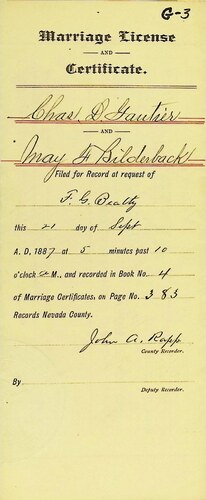 G-3
Marriage License
AND
Certificate.
Chas D Gautier
AND
May F Bilderback
Filed for Record at request of
F. G. Beatty
this 21 day of Sept
A. D, 1887 at 5 minutes past 10
o'clock a M., and recorded in Book No. 4
of Marriage Certificates, on Page No. 383
Records Nevada County.
John A. Rapp
County Recorder.
By
Deputy Recorder.